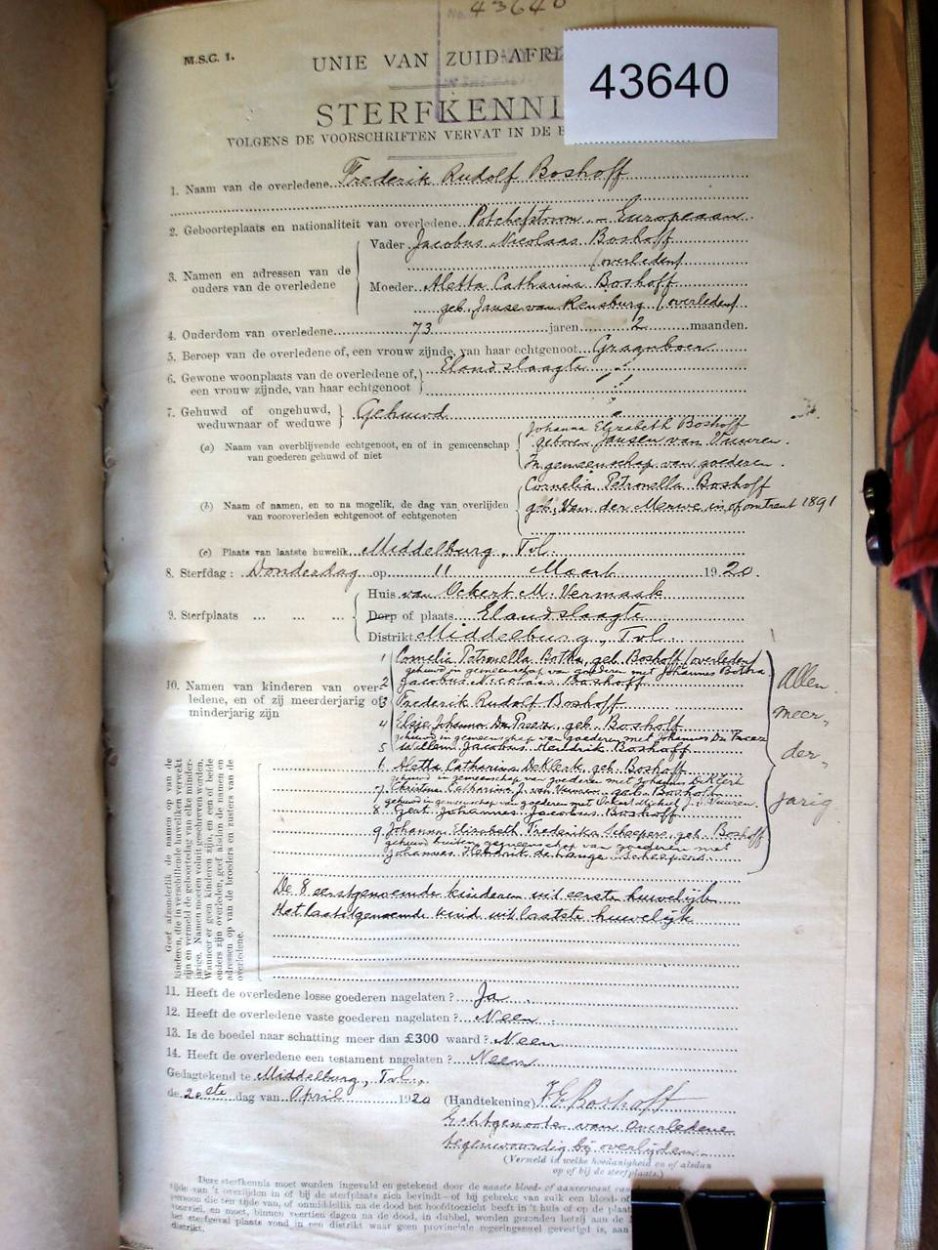 43640
M.S.C. 1.
UNIE VAN ZUID-AFRI
43640
STERFKENNI
VOLGENS DE VOORSCHRIFTEN VERVAT IN DE
1. Naam van de overledene Frederik Rudolf Boshoff
2. Geboorteplaats en nationaliteit van overledene Potchefstroom - Europeaan
3. Namen en adressen van de ouders van de overledene
Vader Jacobus Nicolaas Boshoff
(overleden)
Moeder Aletta Catharina Boshoff
geb. Janse van Rensburg (overleden)
4. Ouderdom van overledene 73 jaren 2 maanden.
5. Beroep van de overledene of, een vrouw zijnde, van haar echtgenoot Graanboer
6. Gewone woonplaats van de overledene of, een vrouw zijnde, van haar echtgenoot Elandslaagte
7. Gehuwd of ongehuwd, weduwnaar of weduwe Gehuwd
(a) Naam van overblijvende echtgenoot, en of in gemeenschap van goederen gehuwd of niet
Johanna Elizabeth Boshoff
geboren Jansen van Vuuren.
In gemeenschap van goederen.
(b) Naam of namen, en zo na mogelijk, de dag van overlijden van vooroverleden echtgenoot of echtgenoten
Cornelia Petronella Boshoff
geb. Van der Merwe in of omtrent 1891
(c) Plaats van laatste huwelik Middelburg, Tvl.
8. Sterfdag: Donderdag op 11 Maart 1920.
9. Sterfplaats ... ... ...
Huis van Ockert M. Vermaak
Dorp of plaats Elandslaagte
Distrikt Middelburg, Tvl.
10. Namen van kinderen van overledene, en of zij meerderjarig of minderjarig zijn
1 Cornelia Petronella Botha, geb. Boshoff (overleden)
gehuwd in gemeenschap van goederen met Johannes Botha
2 Jacobus Nicolaas Boshoff
3 Frederik Rudolf Boshoff
4 Elsje Johanna Du Preez, geb. Boshoff
gehuwd in gemeenschap van goederen met Johannes Du Preez
5 Willem Jacobus Hendrik Boshoff
6 Aletta Catharina De Klerk, geb. Boshoff
gehuwd in gemeenschap van goederen met Johannes De Klerk
7 Christina Catharina J. van Vuuren geb. Boshoff
gehuwd in gemeenschap van goederen met Ockert J. v. Vuuren.
8 Gert Johannes Jacobus Boshoff
9 Johanna Elizabeth Frederika Scheepers, geb. Boshoff
gehuwd buiten gemeenschap van goederen met
Johannes Hendrik de Lange Scheepers.
Allen
meer-
der-
jarig
Geef afzonderlik de namen op van de
kinderen, die in verschillende huweliken verwekt
zijn en vermeld de geboortedag van elke minder-
jarige. Namen moeten voluit geschreven worden.
Wanneer er geen kinderen zijn, en een of beide
ouders zijn overleden, geef alsdan de namen en
adressen op van de broeders en zusters van de
overledene.
De 8 eerstgenoemde kinderen uit eerste huwelijk
Het laatstgenoemde kind uit laatste huwelijk
11. Heeft de overledene losse goederen nagelaten? Ja.
12. Heeft de overledene vaste goederen nagelaten? Neen
13. Is de boedel naar schatting meer dan £300 waard? Neen
14. Heeft de overledene een testament nagelaten? Neen
Gedagtekend te Middelburg, Tvl.,
de 20ste dag van April 1920
(Handtekening) J E Boshoff
Echtgenoote van Overledene
tegenwoordig bij overlijden.
(Vermeld in welke hoedanigheid en of alsdan
op of bij de sterfplaats)
Deze sterfkennis moet worden ingevuld en getekend door de naaste bloed- of aanverwant van
tijde van 't overlijden in of bij de sterfplaats zich bevindt—of bij gebreke van zulk een bloed- of
persoon die ten tijde van, of onmiddellik na de dood het hoofdtoezicht heeft in 't huis of op de plaat
voorviel, en moet, binnen veertien dagen na de dood, in dubbel, worden gezonden hetzij aan de
het sterfgeval plaats vond in een distrikt waar geen provinciale regeringszetel gevestigd is, aan
distrikt.